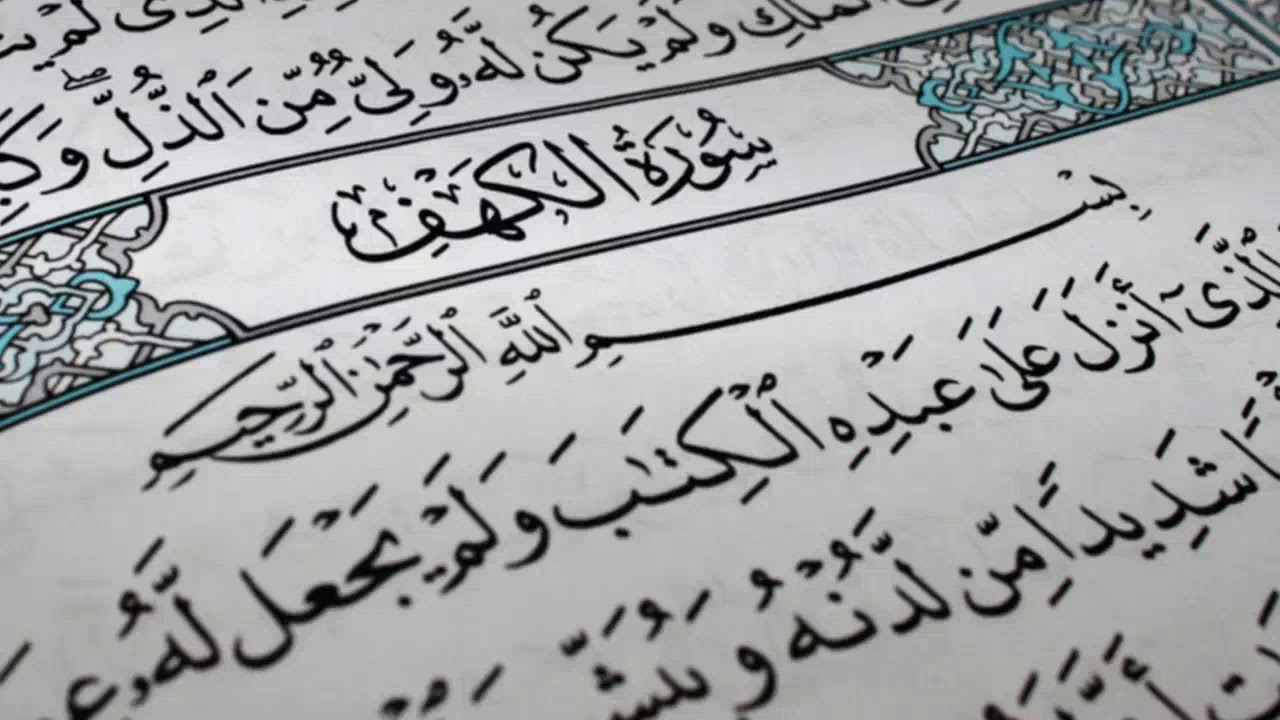 ٱلَّذِى لَمْ
ٱلْمُلْكِ وَلَمْ يَكُن لَّهُۥ وَلِىٌّ مِّنَ ٱلذُّلِّ ۖ وَكَ
سُورَةُ الْكَهْفِ
بِسْمِ ٱللَّهِ ٱلرَّحْمَٰنِ ٱلرَّحِيمِ
ٱلَّذِىٓ أَنزَلَ عَلَىٰ عَبْدِهِ ٱلْكِتَٰبَ وَلَمْ يَجْعَل لَّهُۥ عِ
شَدِيدًا مِّن لَّدُنْهُ وَيُبَشِّ
أَنَّ